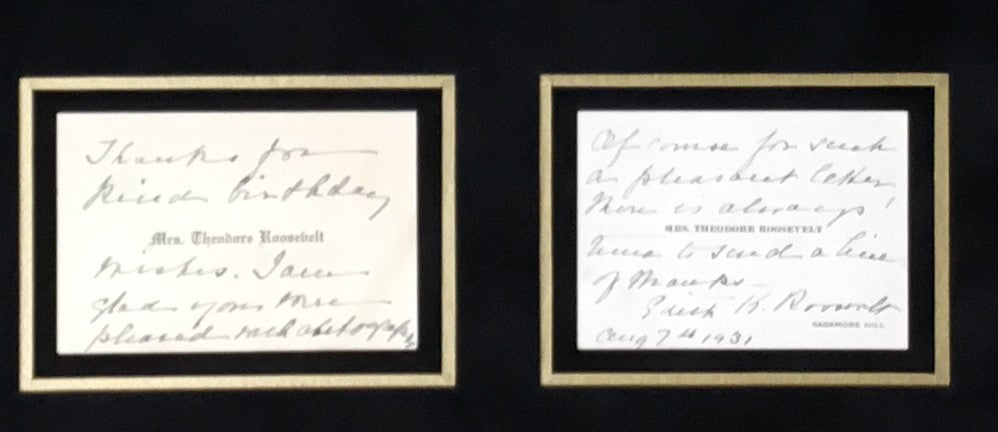 Thanks for
kind birthday
Mrs. Theodore Roosevelt
wishes. I am
glad you were
pleased with autograph
Of course for such
a pleasant letter
there is always
MRS. THEODORE ROOSEVELT
time to send a line
of thanks
Edith K. Roosevelt
SAGAMORE HILL
Aug 7th 1931